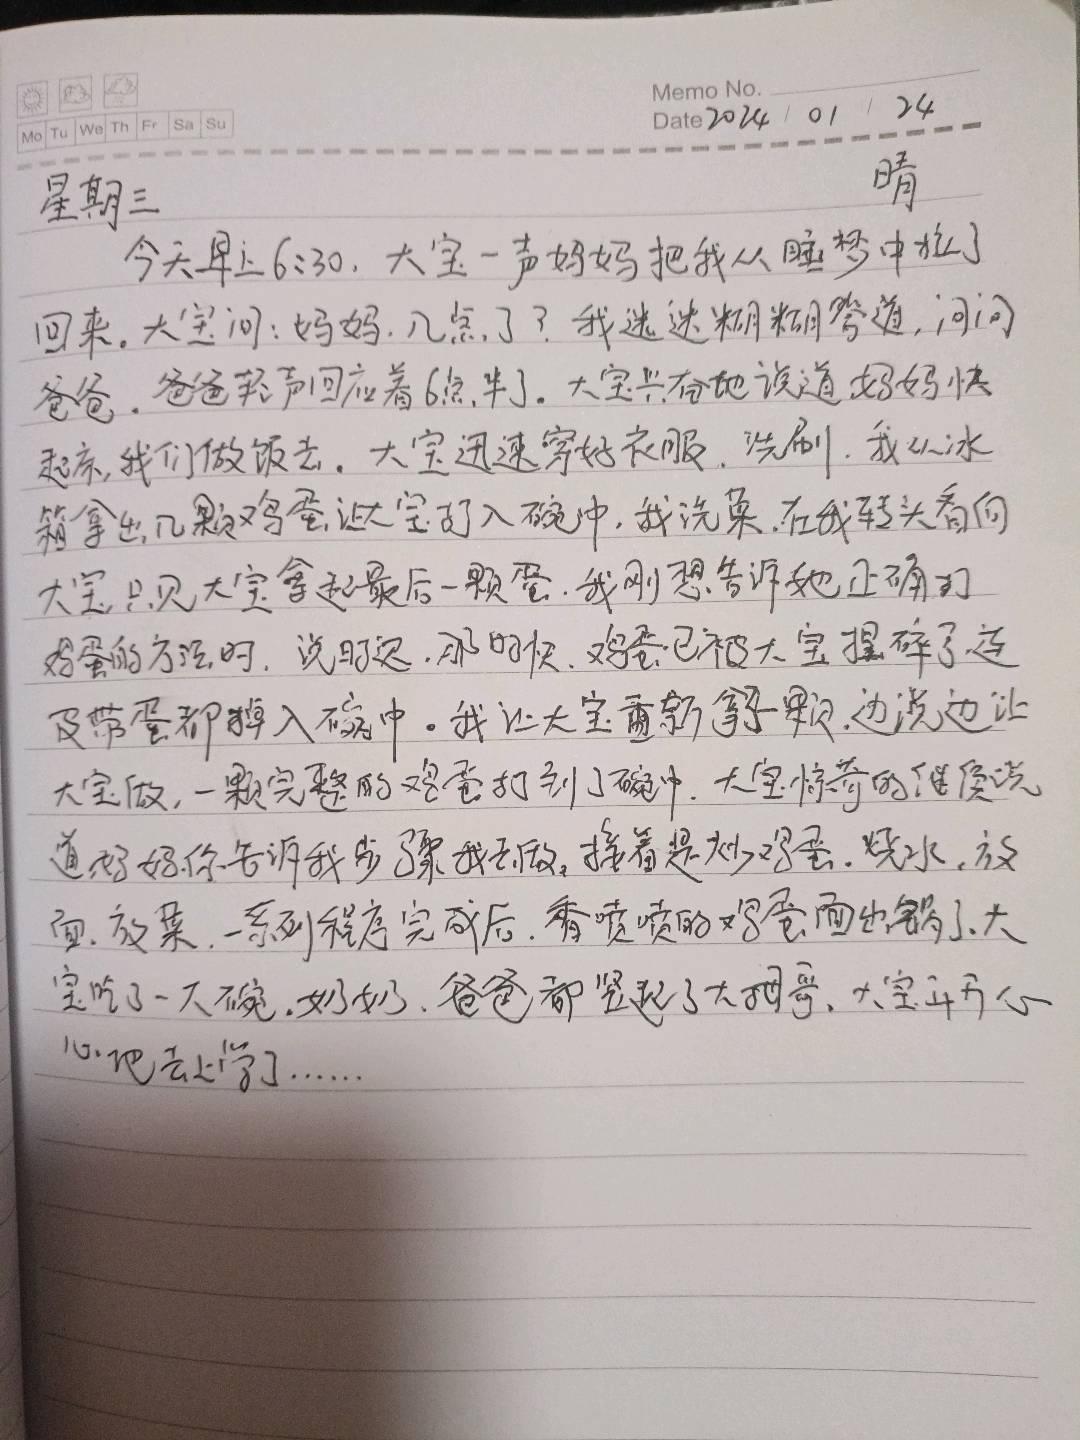 Memo No.
Mo Tu We Th Fr Sa Su
Date 2024 / 01 / 24
星期三 晴
今天早上6:30,大宝一声妈妈把我从睡梦中拉了
回来。大宝问:妈妈,几点了?我迷迷糊糊答道,问问
爸爸。爸爸轻声回应着6点半了。大宝兴奋地说道妈妈快
起床,我们做饭去。大宝迅速穿好衣服,洗刷,我从冰
箱拿出几颗鸡蛋让大宝打入碗中,我洗菜,在我转头看向
大宝,只见大宝拿起最后一颗蛋,我刚想告诉她正确打
鸡蛋的方法时,说时迟,那时快,鸡蛋已被大宝捏碎了,连
皮带蛋都掉入碗中。我让大宝重新拿了一颗,边说边让
大宝做,一颗完整的鸡蛋打到了碗中,大宝惊奇的说
道,妈妈你告诉我步骤我去做,接着是炒鸡蛋,烧水,放
面,放菜,一系列程序完成后,香喷喷的鸡蛋面出锅了,大
宝吃了一大碗,奶奶、爸爸都竖起了大拇哥,大宝开开心
心地去上学了……